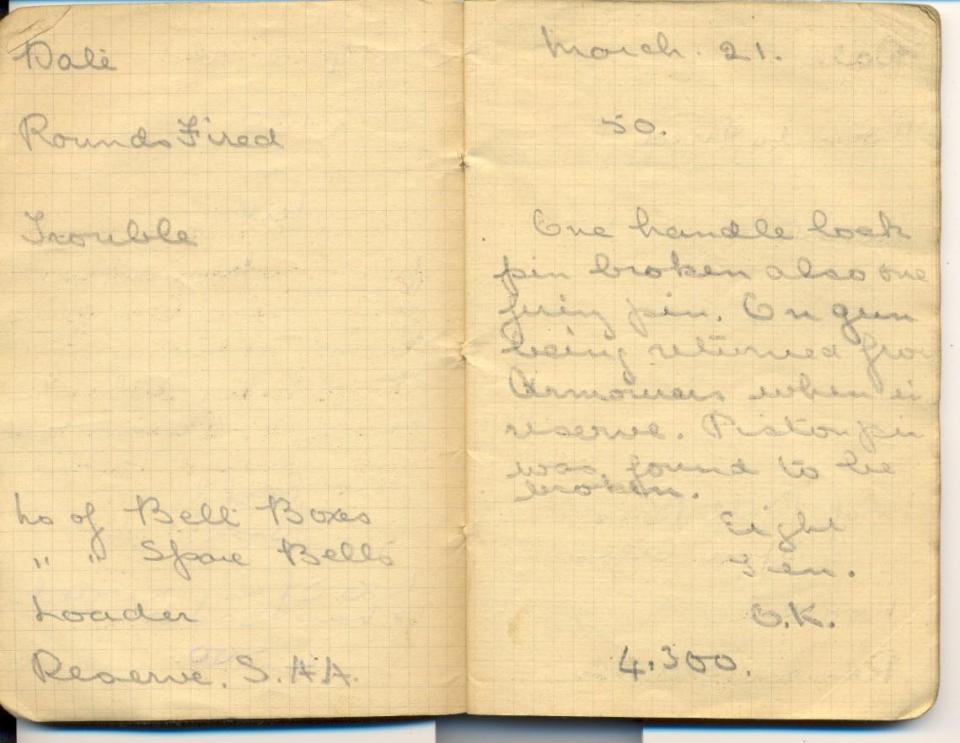 Date March. 21.
Rounds Fired 50.
Trouble One handle lock
pin broken also one
firing pin. On gun
being returned from
Armourers when in
reserve. Piston pin
was found to be
broken.
No of Belt Boxes Eight
" " Spare Belts Ten.
Loader O.K.
Reserve. S.A.A. 4,300.